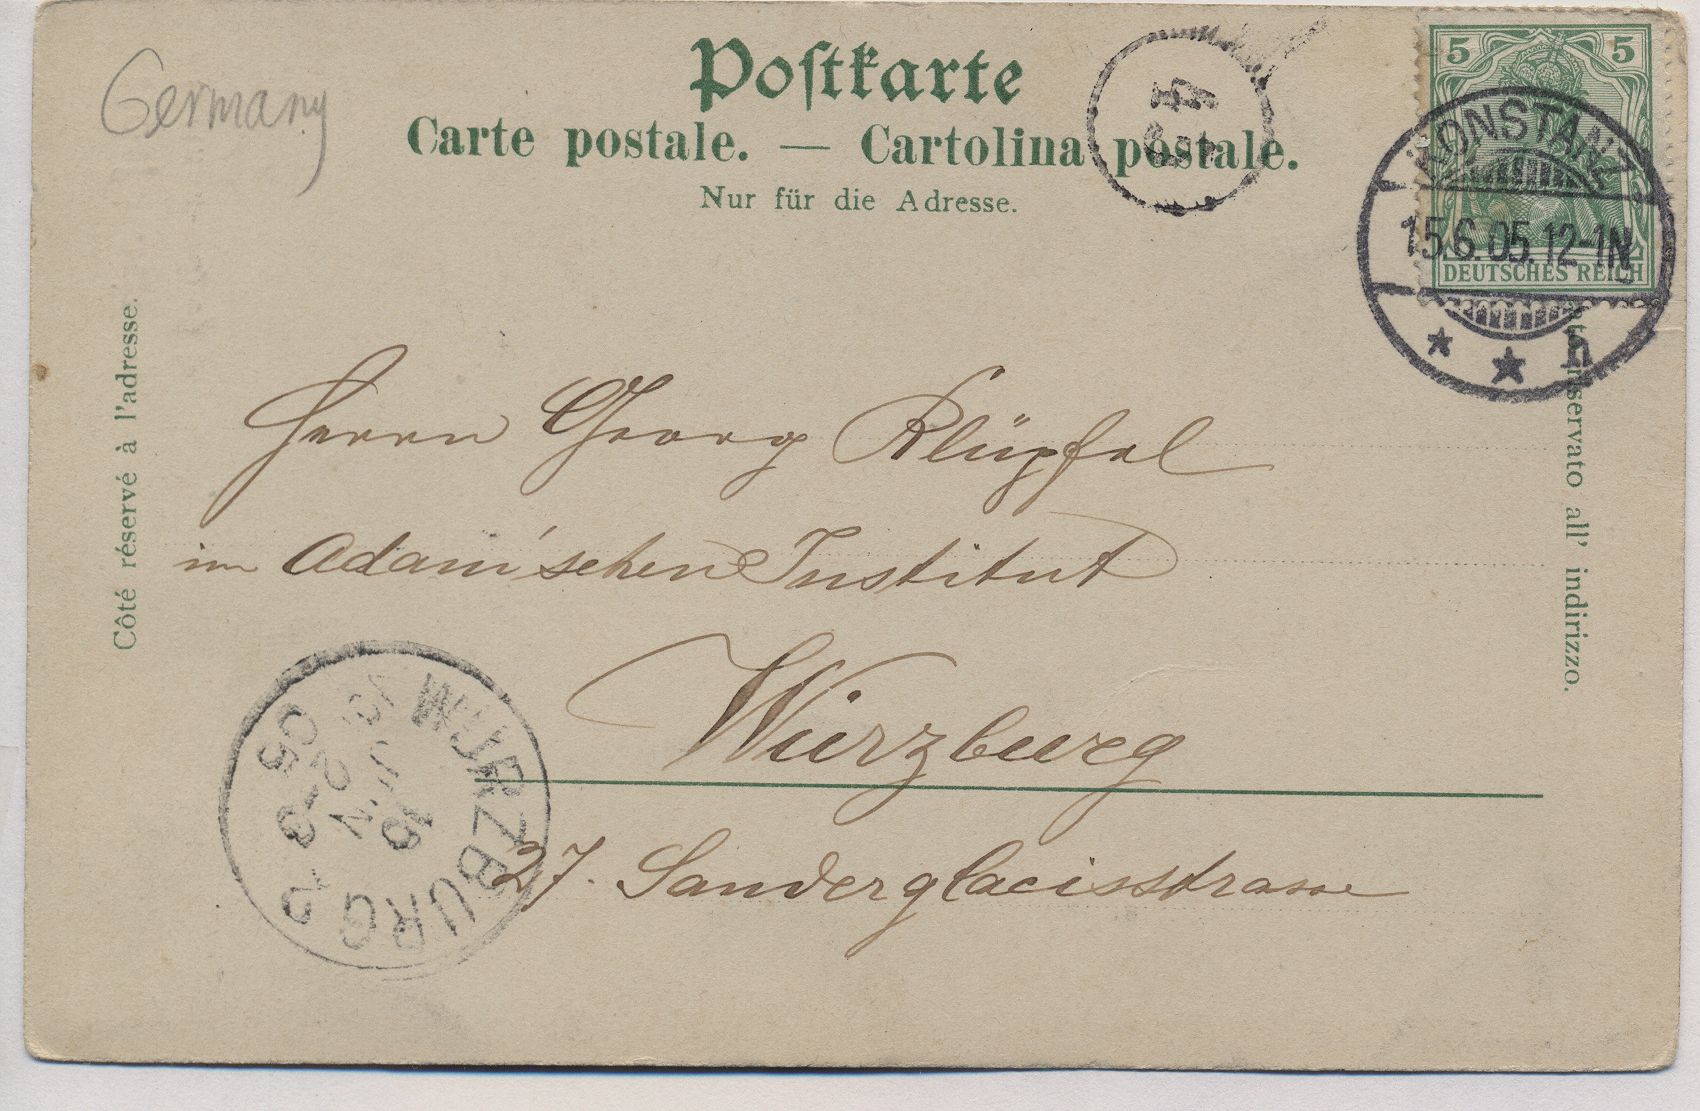 Germany
Postkarte
Carte postale. — Cartolina postale.
Nur für die Adresse.
5 5
DEUTSCHES REICH
KONSTANZ
15.6.05.12-1N
* * h
Côté réservé à l'adresse.
riservato all' indirizzo.
Herrn Georg Klüpfel
im Adam'schen Institut
Würzburg
27. Sanderglacisstrasse
WÜRZBURG 2
16
JUN
2-3
05